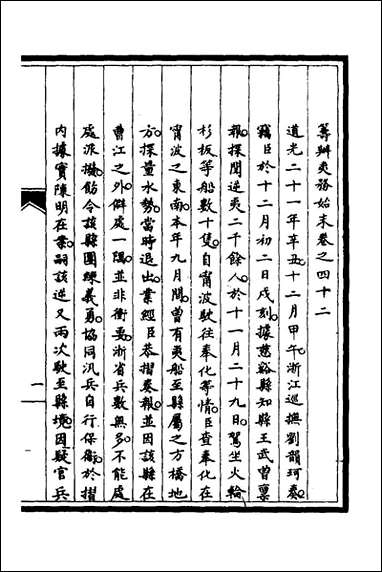 籌辦夷務始末卷之四十二
道光二十一年辛丑十二月甲午浙江巡撫劉韻珂奏
竊臣於十二月初二日戌刻據慈谿縣知縣王武曾稟
報探聞逆夷二千餘人於十一月二十九日駕坐火輪
杉板等船數十隻自甯波駛往奉化等情臣查奉化在
甯波之東南本年九月間曾有夷船至縣屬之方橋地
方探量水勢當時退出業經臣恭摺奏報並因該縣在
曹江之外僻處一隅並非衝要浙省兵數無多不能處
處派撥飭令該縣團練義勇協同汛兵自行保衛於摺
內據實陳明在案嗣該逆又兩次駛至縣境因疑官兵
一